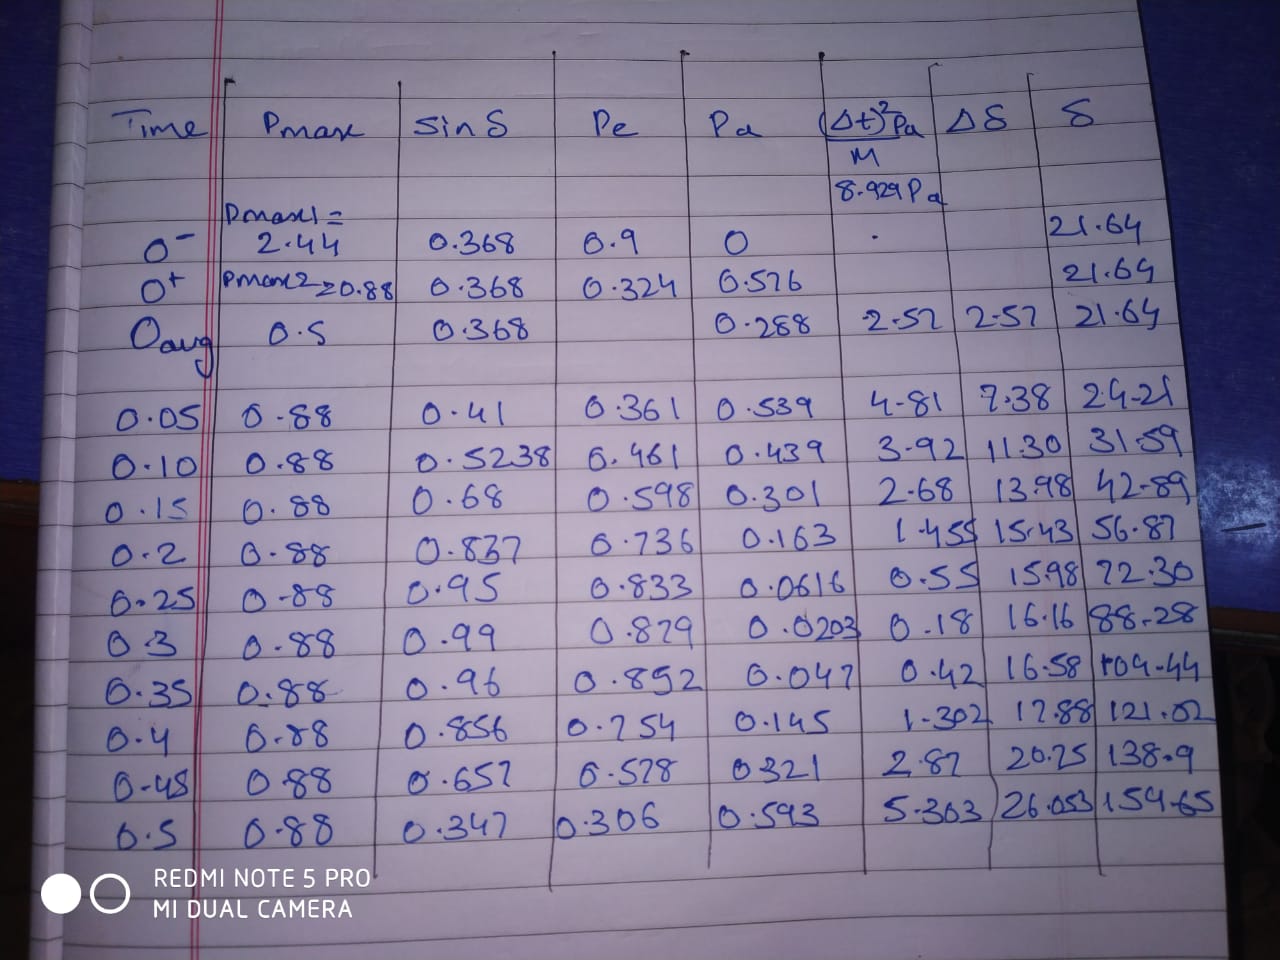 Time Pmax Sin δ Pe Pa (Δt)²Pa/M Δδ δ
8.929 Pa
Pmax1 =
0⁻ 2.44 0.368 0.9 0 . 21.64
0⁺ Pmax2=0.88 0.368 0.324 0.576 21.64
0avg 0.5 0.368 0.288 2.57 2.57 21.64
0.05 0.88 0.41 0.361 0.539 4.81 7.38 24.21
0.10 0.88 0.5238 0.461 0.439 3.92 11.30 31.59
0.15 0.88 0.68 0.598 0.301 2.68 13.98 42.89
0.2 0.88 0.837 0.736 0.163 1.455 15.43 56.87
0.25 0.88 0.95 0.833 0.0616 0.55 15.98 72.30
0.3 0.88 0.99 0.879 0.0203 0.18 16.16 88.28
0.35 0.88 0.96 0.852 0.047 0.42 16.58 104.44
0.4 0.88 0.856 0.754 0.145 1.302 17.88 121.02
0.45 0.88 0.657 0.578 0321 2.87 20.75 138.9
0.5 0.88 0.347 0.306 0.593 5.303 26.053 159.65
REDMI NOTE 5 PRO
MI DUAL CAMERA